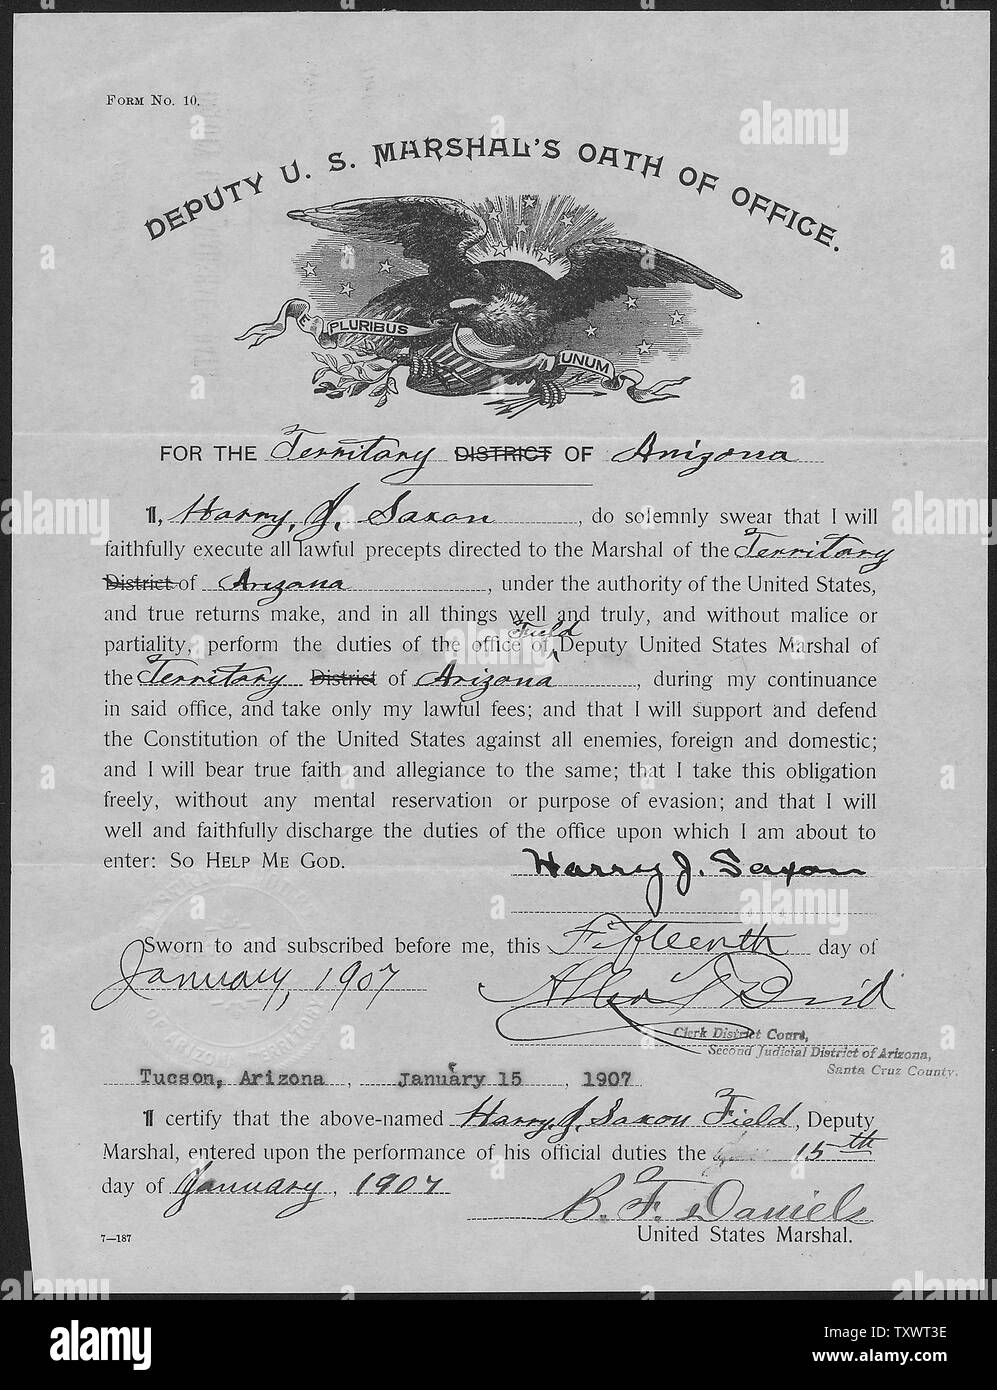 FORM NO. 10.
DEPUTY U. S. MARSHAL'S OATH OF OFFICE.
E PLURIBUS UNUM
FOR THE Territory DISTRICT OF Arizona
I, Harry, J. Saxon, do solemnly swear that I will
faithfully execute all lawful precepts directed to the Marshal of the Territory
District of Arizona, under the authority of the United States,
and true returns make, and in all things well and truly, and without malice or
partiality, perform the duties of the office of Field Deputy United States Marshal of
the Territory District of Arizona, during my continuance
in said office, and take only my lawful fees; and that I will support and defend
the Constitution of the United States against all enemies, foreign and domestic;
and I will bear true faith and allegiance to the same; that I take this obligation
freely, without any mental reservation or purpose of evasion; and that I will
well and faithfully discharge the duties of the office upon which I am about to
enter: SO HELP ME GOD.
Harry J. Saxon
Sworn to and subscribed before me, this Fifteenth day of
January, 1907
Clerk District Court,
Second Judicial District of Arizona,
Santa Cruz County.
Tucson, Arizona, January 15, 1907
I certify that the above-named Harry, J. Saxon Field, Deputy
Marshal, entered upon the performance of his official duties the 15th
day of January, 1907
B. F. Daniels
United States Marshal.
7—187
alamy
Image ID: TXWT3E
www.alamy.com